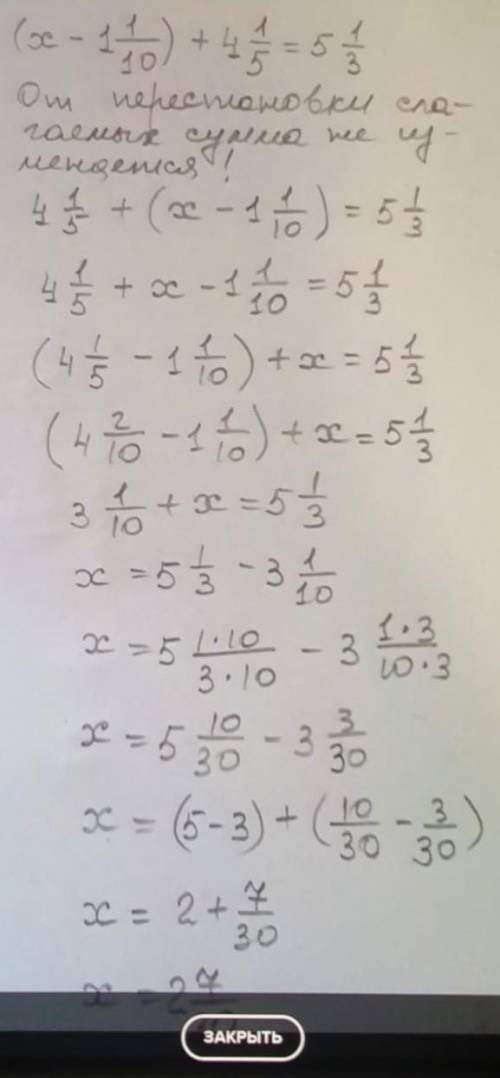 (x - 1 1/10) + 4 1/5 = 5 1/3
От перестановки сла-
гаемых сумма не из-
меняется!
4 1/5 + (x - 1 1/10) = 5 1/3
4 1/5 + x - 1 1/10 = 5 1/3
(4 1/5 - 1 1/10) + x = 5 1/3
(4 2/10 - 1 1/10) + x = 5 1/3
3 1/10 + x = 5 1/3
x = 5 1/3 - 3 1/10
x = 5 1·10/3·10 - 3 1·3/10·3
x = 5 10/30 - 3 3/30
x = (5-3) + (10/30 - 3/30)
x = 2 + 7/30
x = 2 7/
ЗАКРЫТЬ